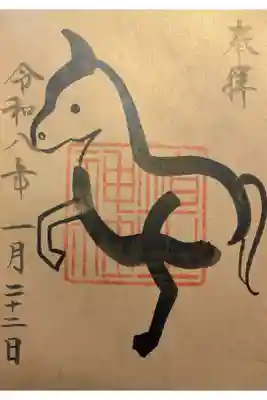 奉拝
令和八年一月二十二日